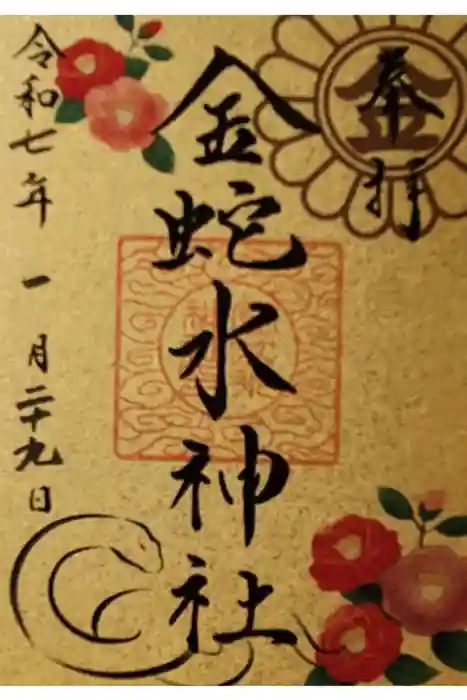 奉拝
金
金蛇水神社
令和七年 一月二十九日